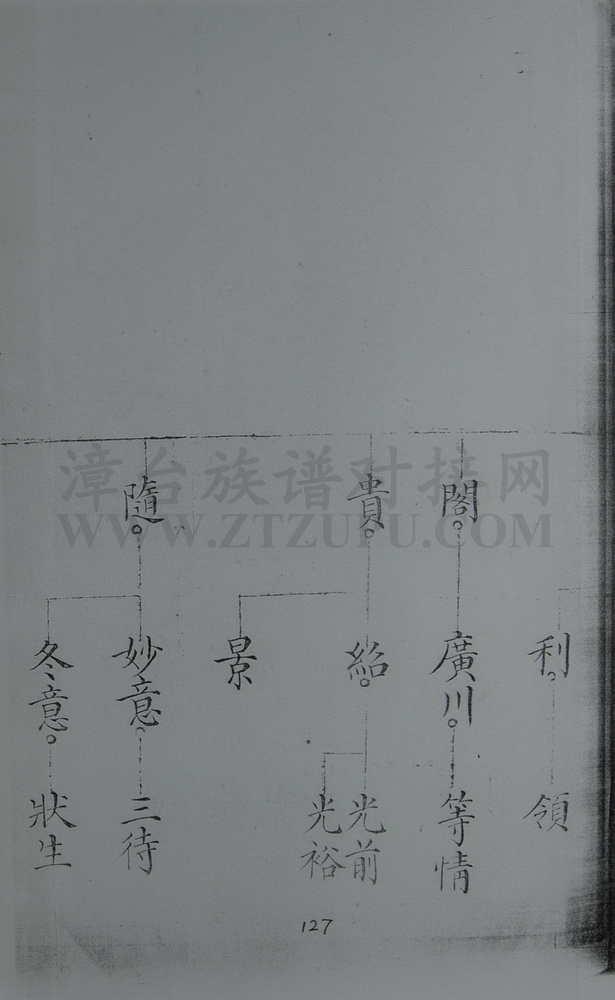 漳台族谱对接网
WWW.ZTZUPU.COM
閣
貴
隨
利
廣川
紹
景
妙意
冬意
領
等情
光前
光裕
三待
狀生
127